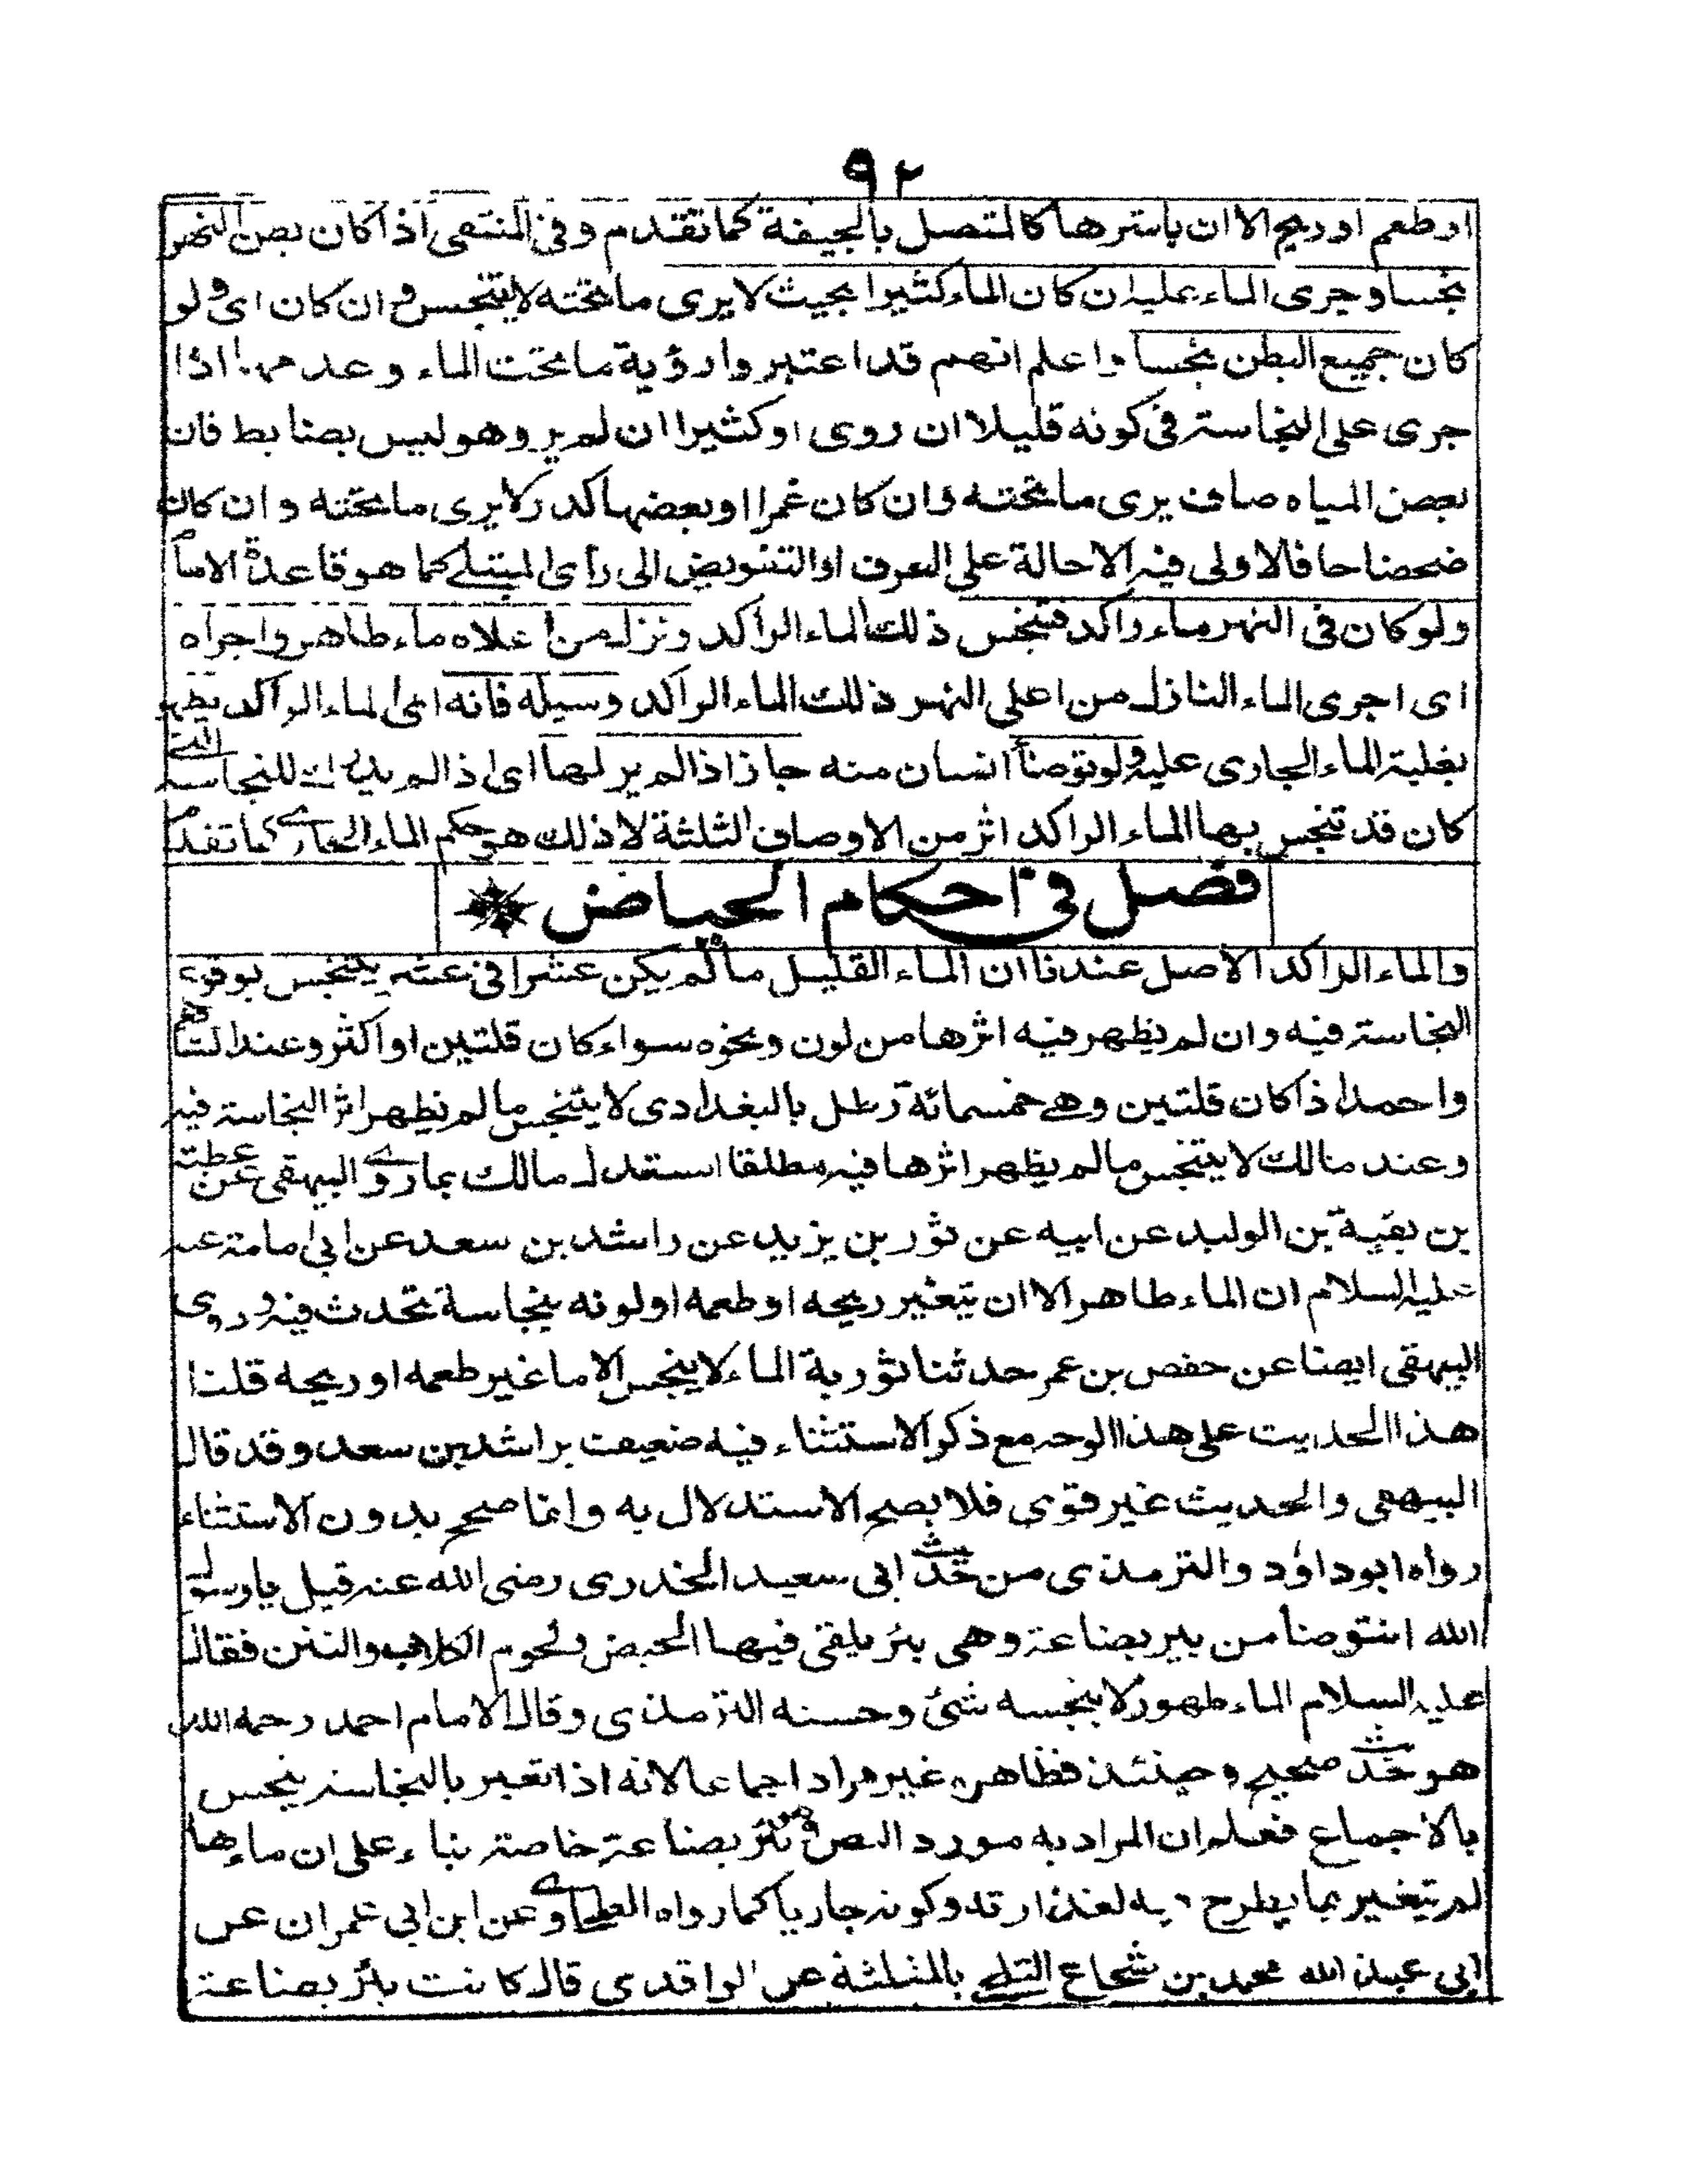 ٩٢
او طعم او ريح الا ان باشرها كالمتصل بالجيفة كما تقدم وفى المنتقى اذا كان بطن النهر
نجسا وجرى الماء عليه ان كان الماء كثيرا بحيث لا يرى ما تحته لا يتنجس وان كان اى ولو
كان جميع البطن نجسا واعلم انهم قد اعتبروا رؤية ما تحت الماء وعدمها اذا
جرى على النجاسة فى كونه قليلا ان روى او كثيرا ان لم ير وهو ليس بضابط فان
بعض المياه صاف يرى ما تحته وان كان غمرا وبعضها كدر لا يرى ما تحته وان كان
ضحضاحا فالاولى فيه الاحالة على العرف او التفويض الى رأى المبتلى كما هو قاعدة الامام
ولو كان فى النهر ماء راكد فتنجس ذلك الماء الراكد ونزل من اعلاه ماء طاهر واجراه
اى اجرى الماء النازل من اعلى النهر ذلك الماء الراكد وسيله فانه اى الماء الراكد يطهر
بغلبة الماء الجارى عليه ولو توضأ انسان منه جاز اذا لم ير لها اى اذا لم ير للنجاسة التى
كان قد تنجس بها الماء الراكد اثر من الاوصاف الثلثة لا ذلك هو حكم الماء الجارى كما تقدم
فصل فى احكام الحياض
والماء الراكد الاصل عندنا ان الماء القليل ما لم يكن عشرا فى عشر يتنجس بوقوع
النجاسة فيه وان لم يظهر فيه اثرها من لون ونحوه سواء كان قلتين او اكثر وعند الشافعى
واحمد اذا كان قلتين وهى خمسمائة رطل بالبغدادى لا يتنجس ما لم يظهر اثر النجاسة فيه
وعند مالك لا يتنجس ما لم يظهر اثرها فيه مطلقا استدل مالك بما روى البيهقى عن عطية
بن بقية بن الوليد عن ابيه عن ثور بن يزيد عن راشد بن سعد عن ابى امامة عنه
عليه السلام ان الماء طاهر الا ان يتغير ريحه او طعمه او لونه بنجاسة تحدث فيه وروى
البيهقى ايضا عن حفص بن عمر حدثنا ثور به الماء لا ينجس الا ما غير طعمه او ريحه قلنا
هذا الحديث على هذا الوجه مع ذكر الاستثناء فيه ضعيف براشد بن سعد وقد قال
البيهقى والحديث غير قوى فلا يصح الاستدلال به وانما صح بدون الاستثناء
رواه ابو داود والترمذى من حديث ابى سعيد الخدرى رضى الله عنه قيل يا رسول
الله انتوضأ من بير بضاعة وهى بئر يلقى فيها الحيض ولحوم الكلاب والنتن فقال
عليه السلام الماء طهور لا ينجسه شئ وحسنه الترمذى وقال الامام احمد رحمه الله
هو حديث صحيح وحينئذ فظاهره غير مراد اجماعا لانه اذا تغير بالنجاسة ينجس
بالاجماع فعلم ان المراد به مورد النص وهو بئر بضاعة خاصة بناء على ان ماءها
لم يتغير بما يطرح به وكونه جاريا كما رواه الطحاوى عن ابن ابى عمران عن
ابى عبد الله محمد بن شجاع الثلجى بالمثلثة عن الواقدى قال كانت بئر بضاعة